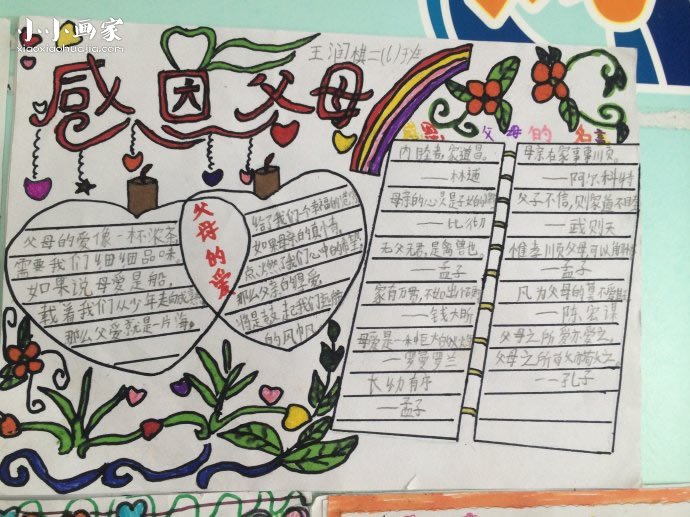 小小画家
xiaoxiaohuajia.com
王润棋二(6)班
感因父母
父母的名言
父母的爱像一杯浓茶
需要我们细细品味
如果说母爱是船,
载着我们从少年走向成熟
那么父爱就是一片海
父母的爱
给了我们一个幸福的
如果母亲的真情
点燃了我们心中的希望
那么父亲的厚爱
将是鼓起我们
的风帆
内睦者家道昌。
——林逋
母亲的心灵是子女的
——比彻
无父无君,是禽兽也。
——孟子
家有万贯,不如出个
——钱大昕
母爱是一种巨大的火焰
——罗曼罗兰
长幼有序
——孟子
母亲在家事事顺。
——阿尔科特
父子不信,则家道不睦
——武则天
惟孝顺父母可以解忧
——孟子
凡为父母的莫不爱其
——陈宏谋
父母之所爱亦爱之,
父母之所敬亦敬之。
——孔子